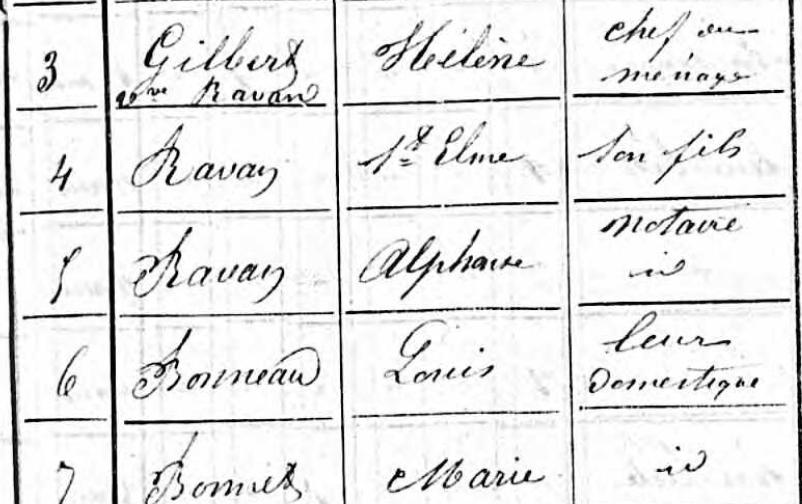 3 Gilbert Hélène chef du
vve Ravan ménage
4 Ravan St Elme son fils
5 Ravan Alphonse notaire
id
6 Bonneau Louis leur
Domestique
7 Bonnet Marie id